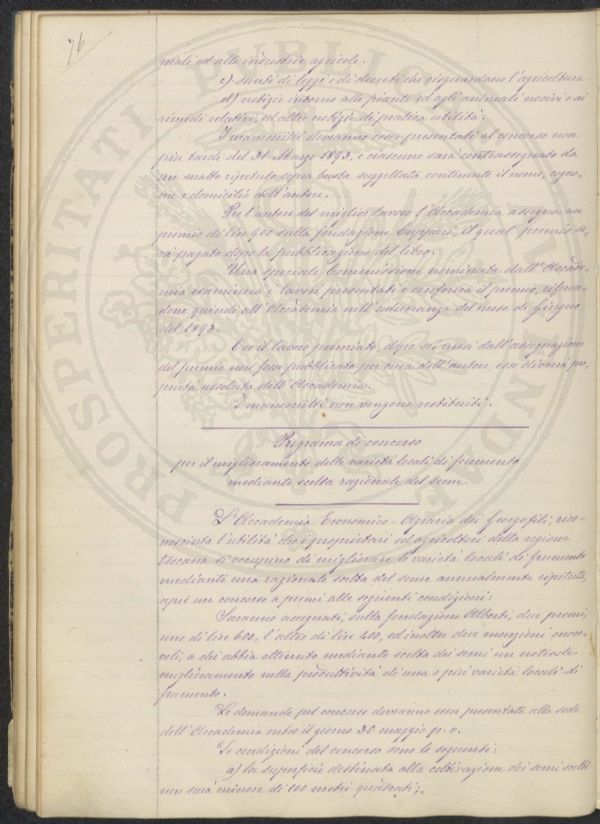 74
mali ed alle industrie agricole.
c) sunti di leggi e di decreti che riguardano l'agricoltura.
d) notizie intorno alle piante ed agli animali nocivi e ai
rimedi relativi, ed altre notizie di pratica utilità.
I manoscritti dovranno esser presentati al concorso non
più tardi del 31 Marzo 1893, e ciascuno sarà contrassegnato da
un motto ripetuto sopra busta suggellata contenente il nome, cogno-
me e domicilio dell'autore.
Per l'autore del miglior lavoro l'Accademia assegna un
premio di lire 500 sulla fondazione Cuppari, il qual premio sa-
rà pagato dopo la pubblicazione del libro.
Una speciale Commissione nominata dall'Accade-
mia esaminerà i lavori presentati e conferirà il premio, riferen-
done quindi all'Accademia nell'adunanza del mese di Giugno
del 1893.
Ove il lavoro premiato, dopo sei mesi dall'assegnazione
del premio non fosse pubblicato per cura dell'autore, esso diverrà pro-
prietà assoluta dell'Accademia.
I manoscritti non vengono restituiti.
Programa di concorso
per il miglioramento delle varietà locali di frumento
mediante scelta razionale del seme
L'Accademia Economico-Agraria dei Georgofili, rico-
nosciuta l'utilità che i proprietari ed agricoltori della regione
toscana si occupino di migliorare le varietà locali di frumento
mediante una razionale scelta del seme annualmente ripetuta,
apre un concorso a premi alle seguenti condizioni:
Saranno assegnati, sulla fondazione Alberti, due premi,
uno di lire 600, l'altro di lire 400, ed inoltre due menzioni onore-
voli, a chi abbia ottenuto mediante scelta dei semi un notevole
miglioramento nella produttività di una o più varietà locali di
frumento.
Le domande pel concorso dovranno esser presentate alla sede
dell'Accademia entro il giorno 30 maggio p. v.
Le condizioni del concorso sono le seguenti:
a) la superficie destinata alla coltivazione dei semi scelti
non sarà minore di 100 metri quadrati;
PROSPERITATI PUBLICAE AUGENDAE